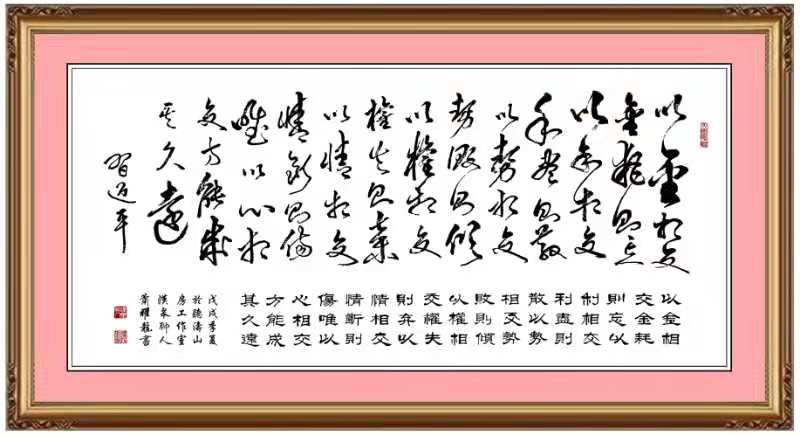 以金相交
金耗則忘
以利相交
利盡則散
以勢相交
勢敗則傾
以權相交
權失則棄
以情相交
情斷則傷
唯以心相
交方能成
其久遠
習近平
以金相
交金耗
則忘以
利相交
利盡則
散以勢
相交勢
敗則傾
以權相
交權失
則弃以
情相交
情斷則
傷唯以
心相交
方能成
其久遠
戊戌季夏
於聽濤山
房工作室
漢人
蕭耀龍書